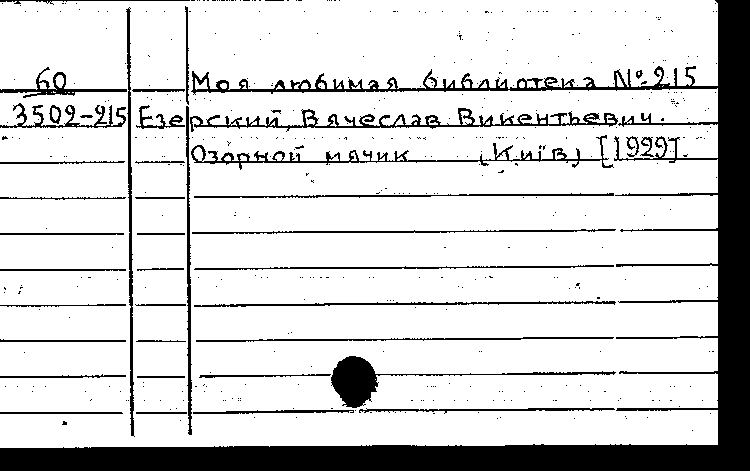 60 Моя любимая библиотека № 215
3502-215 Езерский, Вячеслав Викентьевич.
Озорной мячик (Київ) [1929].